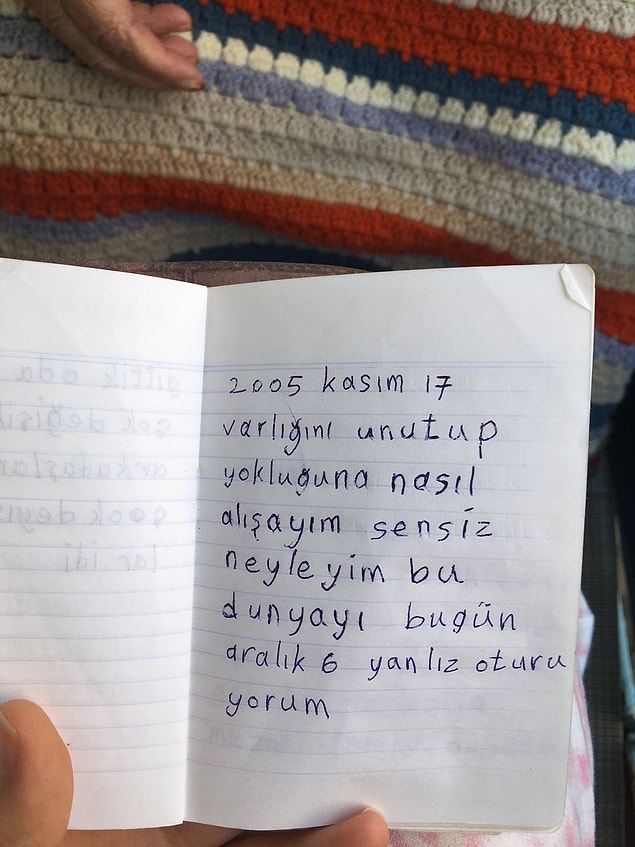 2005 kasım 17
varlığını unutup
yokluğuna nasıl
alışayım sensiz
neyleyim bu
dunyayı bugün
aralık 6 yanlız oturu
yorum